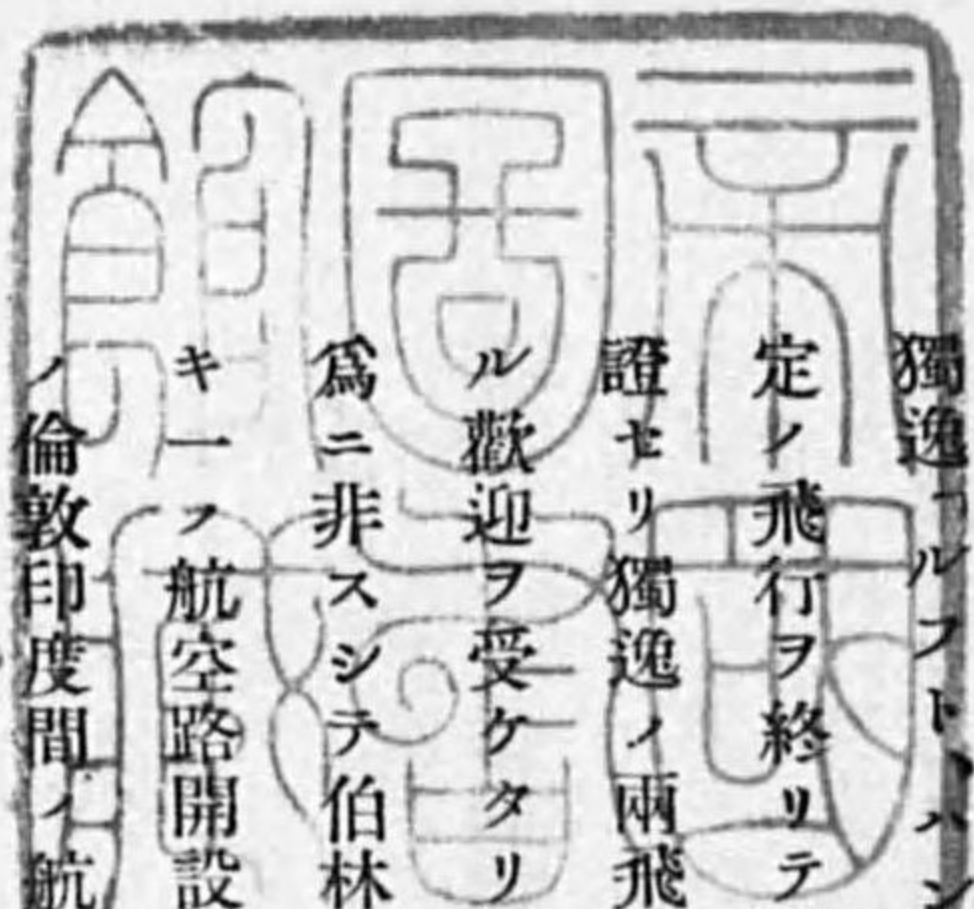 獨逸「ルフトハン
定ノ飛行ヲ終リテ
證セリ獨逸ノ兩飛
ル歡迎ヲ受ケタリ
爲ニ非スシテ伯林
キ一ノ航空路開設
ノ倫敦印度間ノ航
帝國